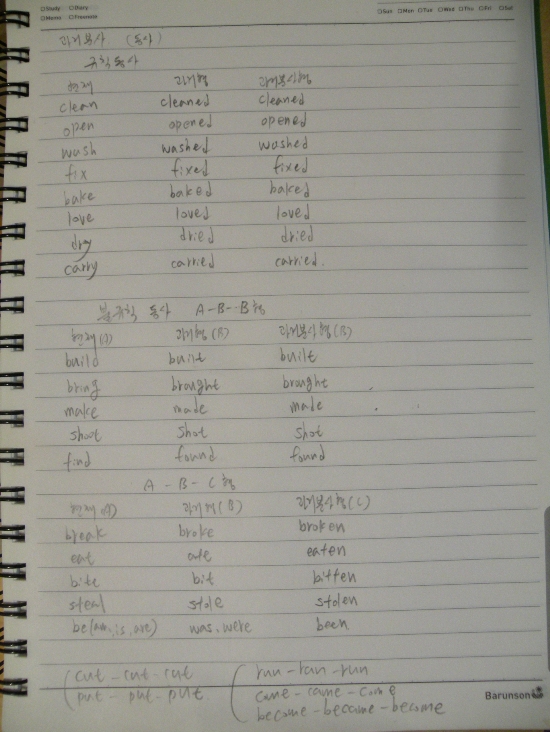 □Study □Diary
□Memo □Freenote
□Sun □Mon □Tue □Wed □Thu □Fri □Sat
과거분사 (동사)
규칙동사
현재 과거형 과거분사형
clean cleaned cleaned
open opened opened
wash washed washed
fix fixed fixed
bake baked baked
love loved loved
dry dried dried
carry carried carried.
불규칙 동사 A-B-B형
현재(A) 과거형(B) 과거분사형(B)
build built built
bring brought brought
make made made
shoot shot shot
find found found
A-B-C형
현재(A) 과거형(B) 과거분사형(C)
break broke broken
eat ate eaten
bite bit bitten
steal stole stolen
be(am, is, are) was, were been
cut - cut - cut
put - put - put
run - ran - run
came - came - come
become - became - become
Barunson